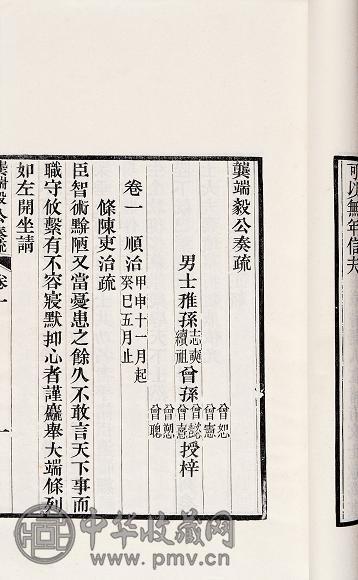 可以無年信夫
龔端毅公奏疏
男士稚孫志奭續祖曾孫曾恕曾憲曾懿曾憙曾愬曾聰授梓
卷一 順治甲申十一月起癸巳五月止
條陳吏治疏
臣智術黭陋又當憂患之餘久不敢言天下事而
職守攸繫有不容寢默抑心者謹麤舉大端條列
如左開坐請
龔端毅公奏疏 卷一 一
中华收藏网
www.pmv.cn